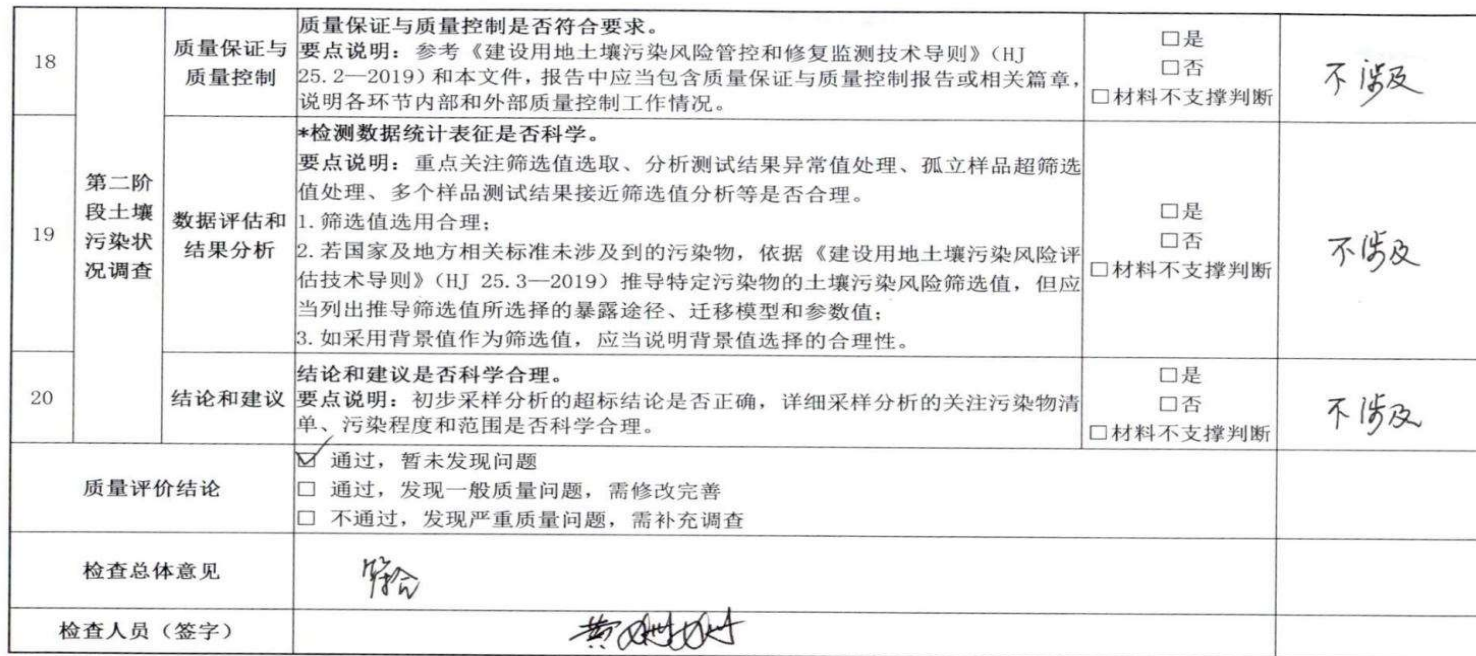 18
质量保证与
质量控制
质量保证与质量控制是否符合要求。
要点说明：参考《建设用地土壤污染风险管控和修复监测技术导则》（HJ
25.2—2019）和本文件，报告中应当包含质量保证与质量控制报告或相关篇章，
说明各环节内部和外部质量控制工作情况。
□是
□否
□材料不支撑判断
不涉及
第二阶
段土壤
污染状
况调查
19
数据评估和
结果分析
*检测数据统计表征是否科学。
要点说明：重点关注筛选值选取、分析测试结果异常值处理、孤立样品超筛选
值处理、多个样品测试结果接近筛选值分析等是否合理。
1.筛选值选用合理；
2.若国家及地方相关标准未涉及到的污染物，依据《建设用地土壤污染风险评
估技术导则》（HJ 25.3—2019）推导特定污染物的土壤污染风险筛选值，但应
当列出推导筛选值所选择的暴露途径、迁移模型和参数值；
3.如采用背景值作为筛选值，应当说明背景值选择的合理性。
□是
□否
□材料不支撑判断
不涉及
20
结论和建议
结论和建议是否科学合理。
要点说明：初步采样分析的超标结论是否正确，详细采样分析的关注污染物清
单、污染程度和范围是否科学合理。
□是
□否
□材料不支撑判断
不涉及
质量评价结论
☑ 通过，暂未发现问题
□ 通过，发现一般质量问题，需修改完善
□ 不通过，发现严重质量问题，需补充调查
检查总体意见
符合
检查人员（签字）
黄